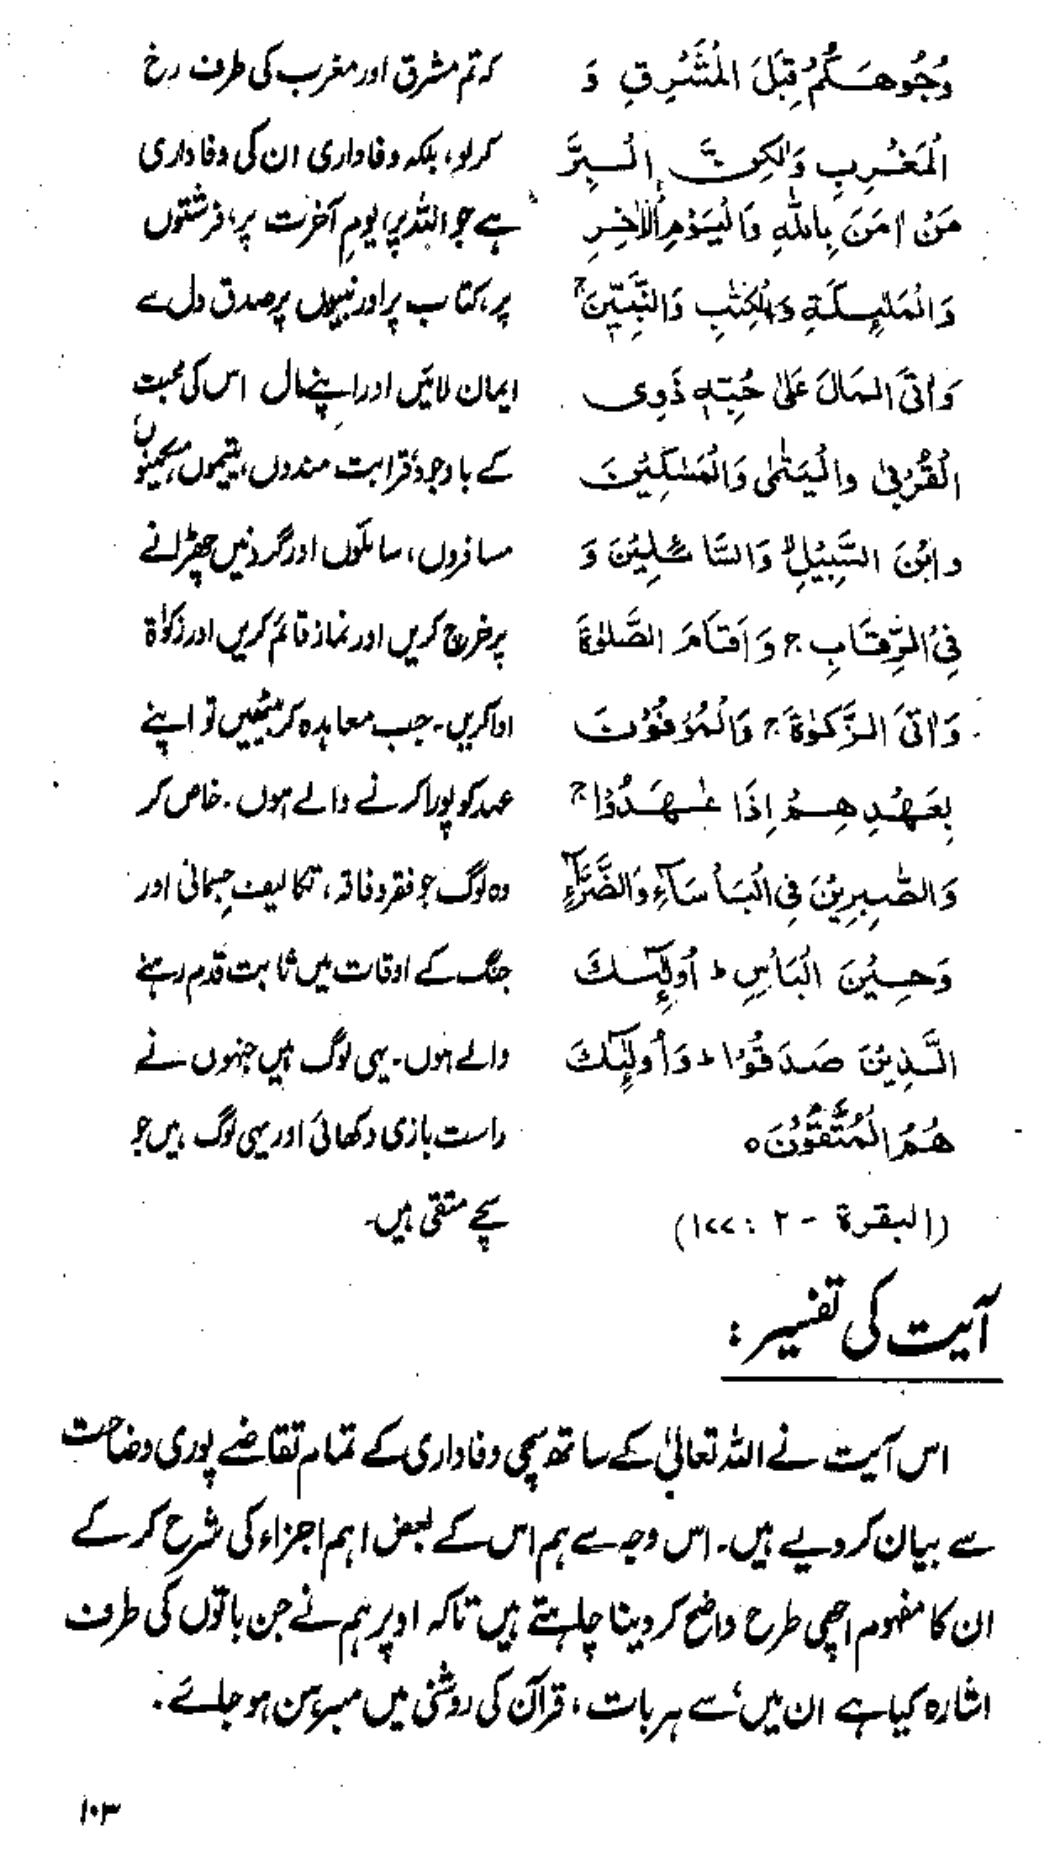 وُجُوهَكُمْ قِبَلَ الْمَشْرِقِ وَ
الْمَغْرِبِ وَلٰكِنَّ الْبِرَّ
مَنْ اٰمَنَ بِاللّٰهِ وَالْيَوْمِ الْاٰخِرِ
وَالْمَلٰٓئِكَةِ وَالْكِتٰبِ وَالنَّبِيّٖنَ ۚ
وَاٰتَى الْمَالَ عَلٰى حُبِّهٖ ذَوِى
الْقُرْبٰى وَالْيَتٰمٰى وَالْمَسٰكِيْنَ
وَابْنَ السَّبِيْلِ ۙ وَالسَّآئِلِيْنَ وَ
فِى الرِّقَابِ ۚ وَاَقَامَ الصَّلٰوةَ
وَاٰتَى الزَّكٰوةَ ۚ وَالْمُوْفُوْنَ
بِعَهْدِهِمْ اِذَا عٰهَدُوْا ۚ
وَالصّٰبِرِيْنَ فِى الْبَاْسَآءِ وَالضَّرَّآءِ
وَحِيْنَ الْبَاْسِ ؕ اُولٰٓئِكَ
الَّذِيْنَ صَدَقُوْا ؕ وَاُولٰٓئِكَ
هُمُ الْمُتَّقُوْنَ ○
(البقرة - ۲ : ۱۷۷)
کہ تم مشرق اور مغرب کی طرف رخ
کرلو، بلکہ وفاداری ان کی وفاداری
ہے جو اللہ پر، یومِ آخرت پر، فرشتوں
پر، کتاب پر اور نبیوں پر صدق دل سے
ایمان لائیں اور اپنے مال اس کی محبت
کے باوجود قرابت مندوں، یتیموں، مسکینوں
مسافروں، سائلوں اور گردنیں چھڑانے
پر خرچ کریں اور نماز قائم کریں اور زکوٰۃ
ادا کریں۔ جب معاہدہ کر بیٹھیں تو اپنے
عہد کو پورا کرنے والے ہوں۔ خاص کر
وہ لوگ جو فقر و فاقہ، تکالیفِ جسمانی اور
جنگ کے اوقات میں ثابت قدم رہنے
والے ہوں۔ یہی لوگ ہیں جنہوں نے
راست بازی دکھائی اور یہی لوگ ہیں جو
سچے متقی ہیں۔
آیت کی تفسیر :
اس آیت نے اللہ تعالیٰ کے ساتھ سچی وفاداری کے تمام تقاضے پوری وضاحت
سے بیان کر دیے ہیں۔ اس وجہ سے ہم اس کے بعض اہم اجزاء کی شرح کر کے
ان کا مفہوم اچھی طرح واضح کر دینا چاہتے ہیں تاکہ اوپر ہم نے جن باتوں کی طرف
اشارہ کیا ہے ان میں سے ہر بات، قرآن کی روشنی میں مبرہن ہو جائے۔
۱۰۳